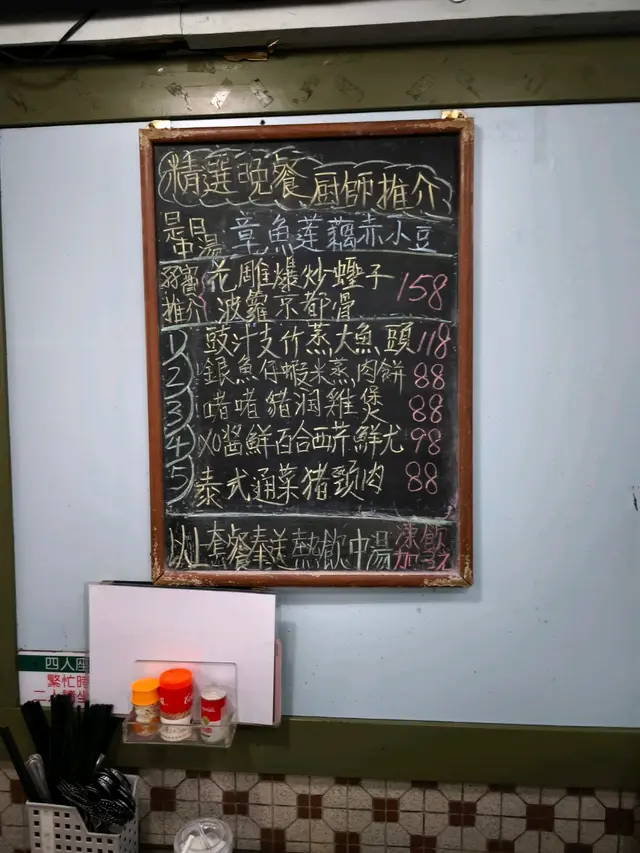 精選晚餐 厨師推介
是日中湯 章魚蓮藕赤小豆
推介 花雕爆炒蟶子 158
波蘿京都骨
1 豉汁支竹蒸大魚頭 118
2 銀魚仔蝦米蒸肉餅 88
3 啫啫豬潤雞煲 88
4 XO醬鮮百合西芹鮮尤 98
5 泰式通菜猪頸肉 88
以上套餐奉送熱飲中湯 凍飲加3元
四人座
繁忙時
二人